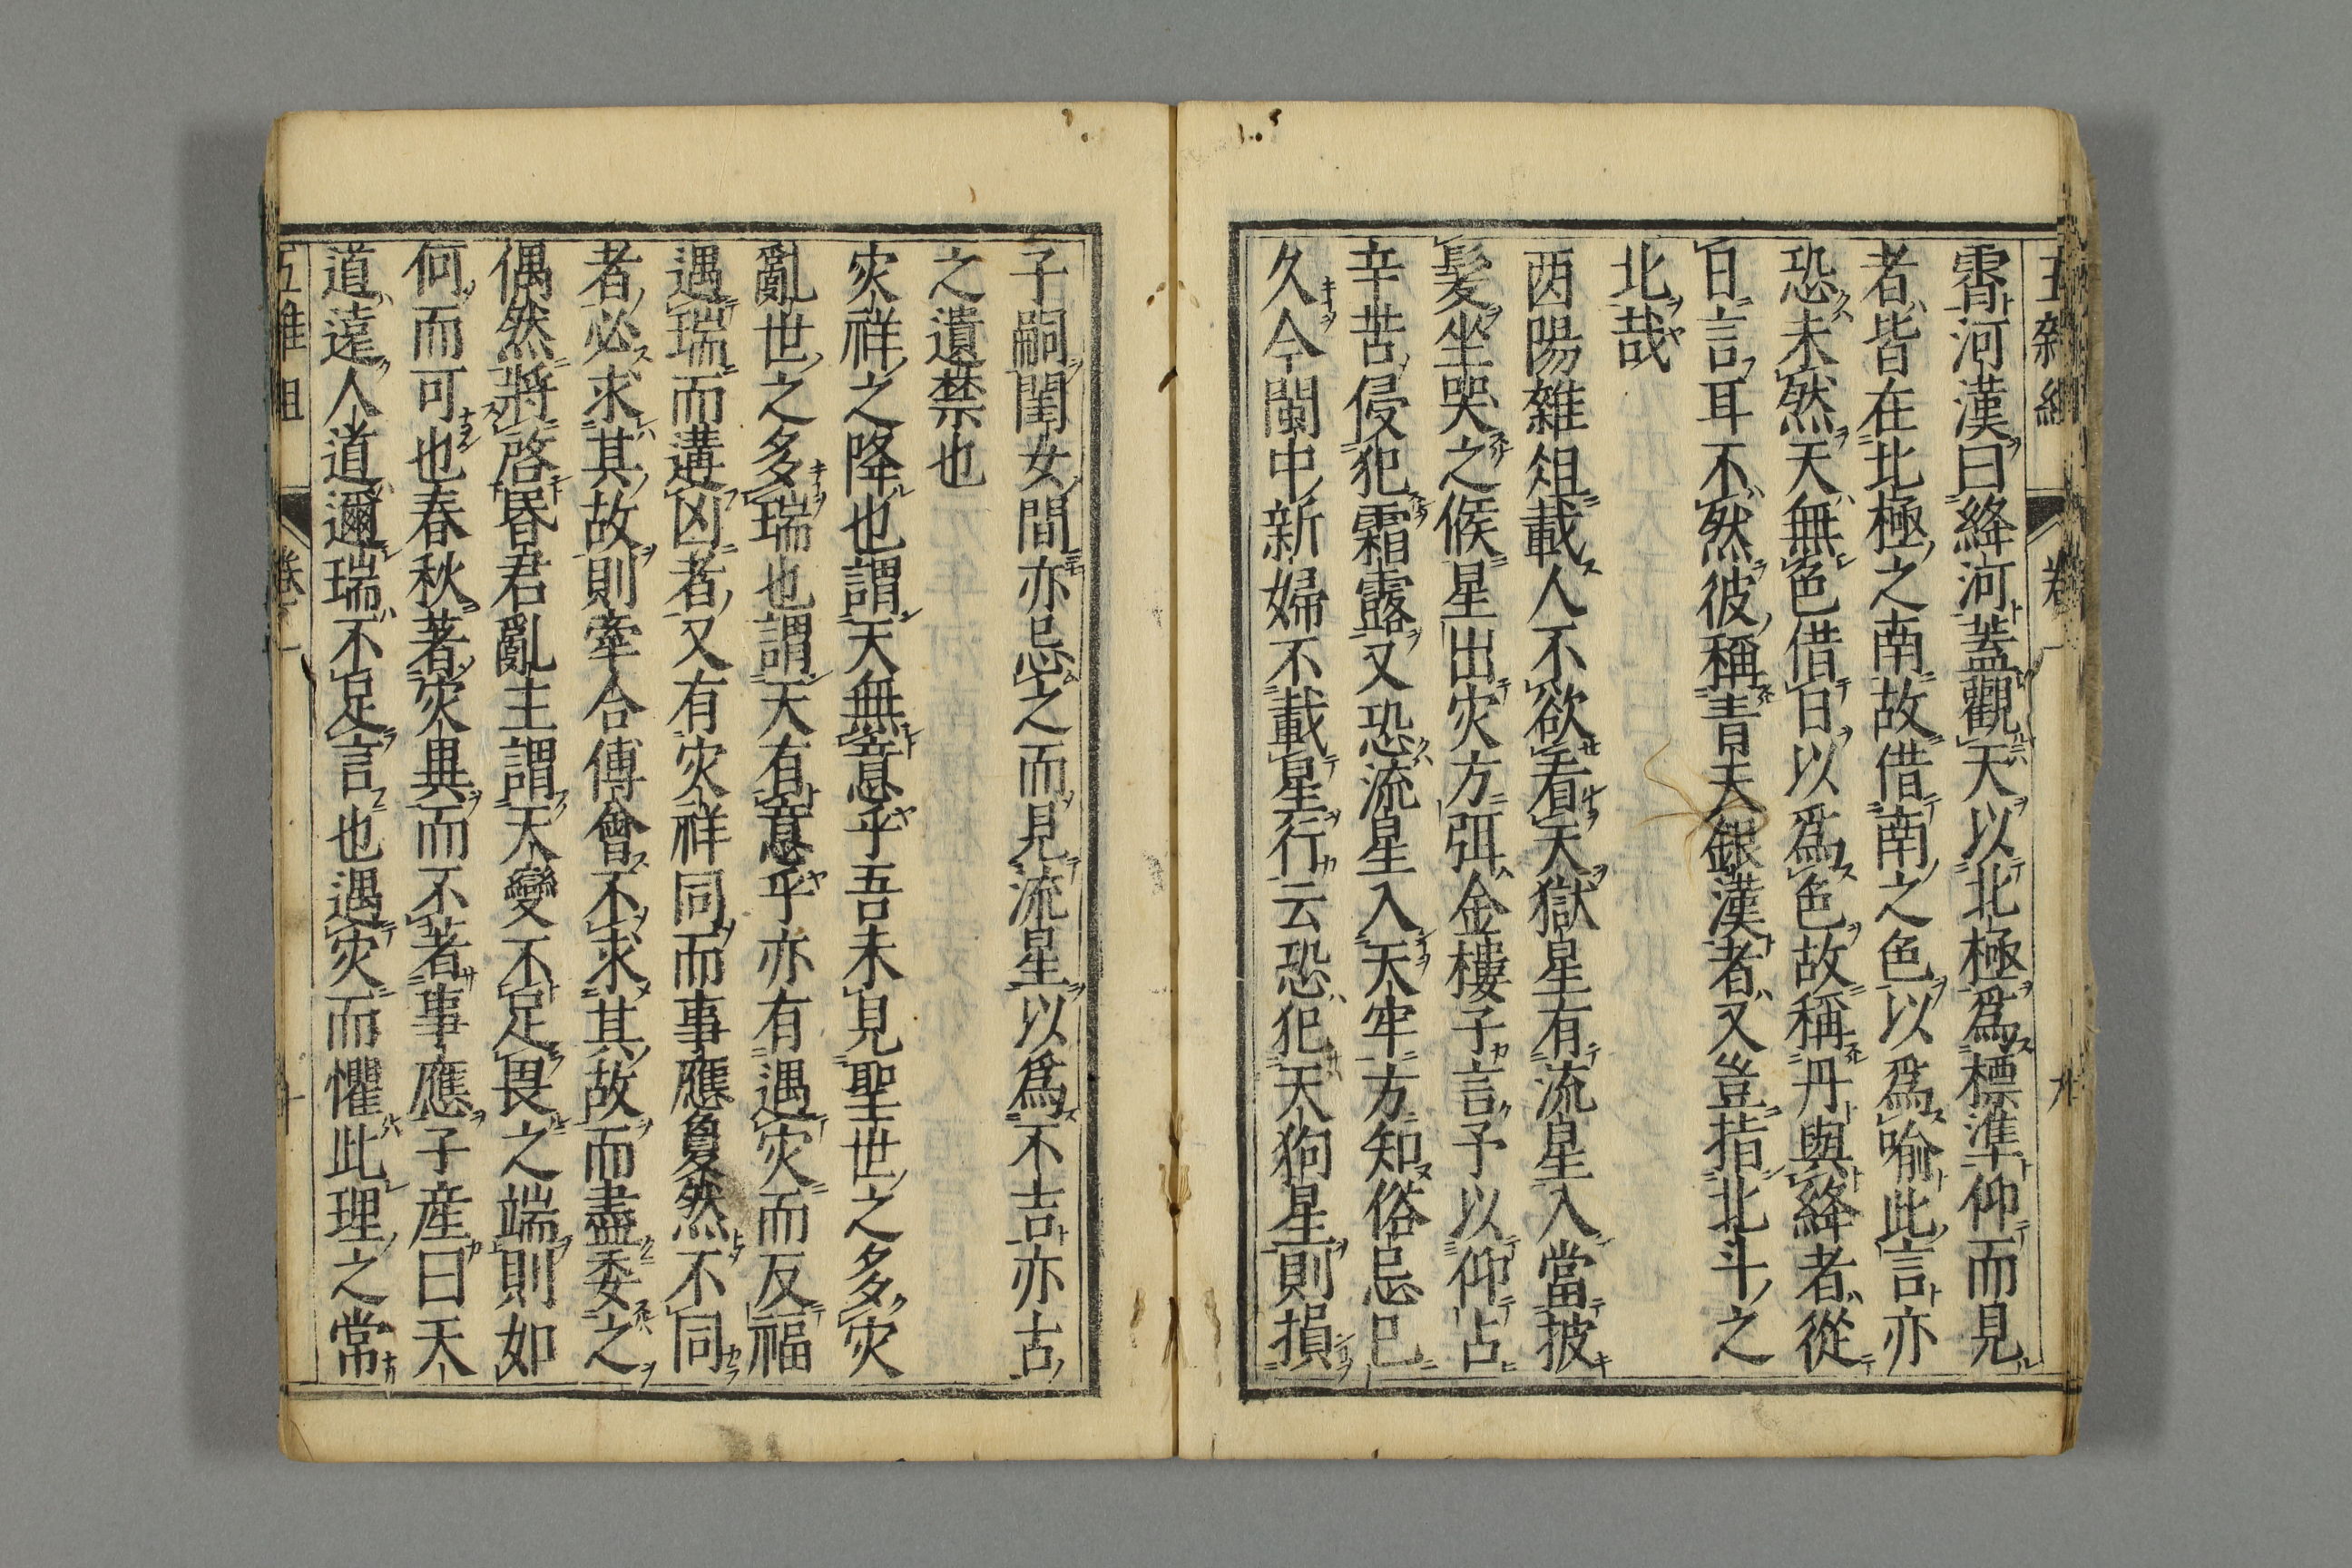 霄河漢曰絳河蓋觀天以北極爲標準仰而見
者皆在北極之南故借南之色以爲喻此言亦
恐未然天無色借日以爲色故稱丹與絳者從
日言耳不然彼稱青天銀漢者又豈指北斗之
北哉
西陽雜俎載人不欲看天獄星有流星入當披
髮坐哭之候星出灾方弭金樓子言予以仰占
辛苦侵犯霜露又恐流星入天牢方知俗忌已
久今閩中新婦不載星行云恐犯天狗星則損
子嗣閨女間亦忌之而見流星以爲不吉亦古
之遺禁也
灾祥之降也謂天無意乎吾未見聖世之多灾
亂世之多瑞也謂天有意乎亦有遇灾而反福
遇瑞而遘凶者又有灾祥同而事應敻然不同
者必求其故則牽合傅會不求其故而盡委之
偶然將啓昬君亂主謂天變不足畏之端則如
何而可也春秋著灾異而不著事應子産曰天
道遠人道邇瑞不足言也遇灾而懼此理之常